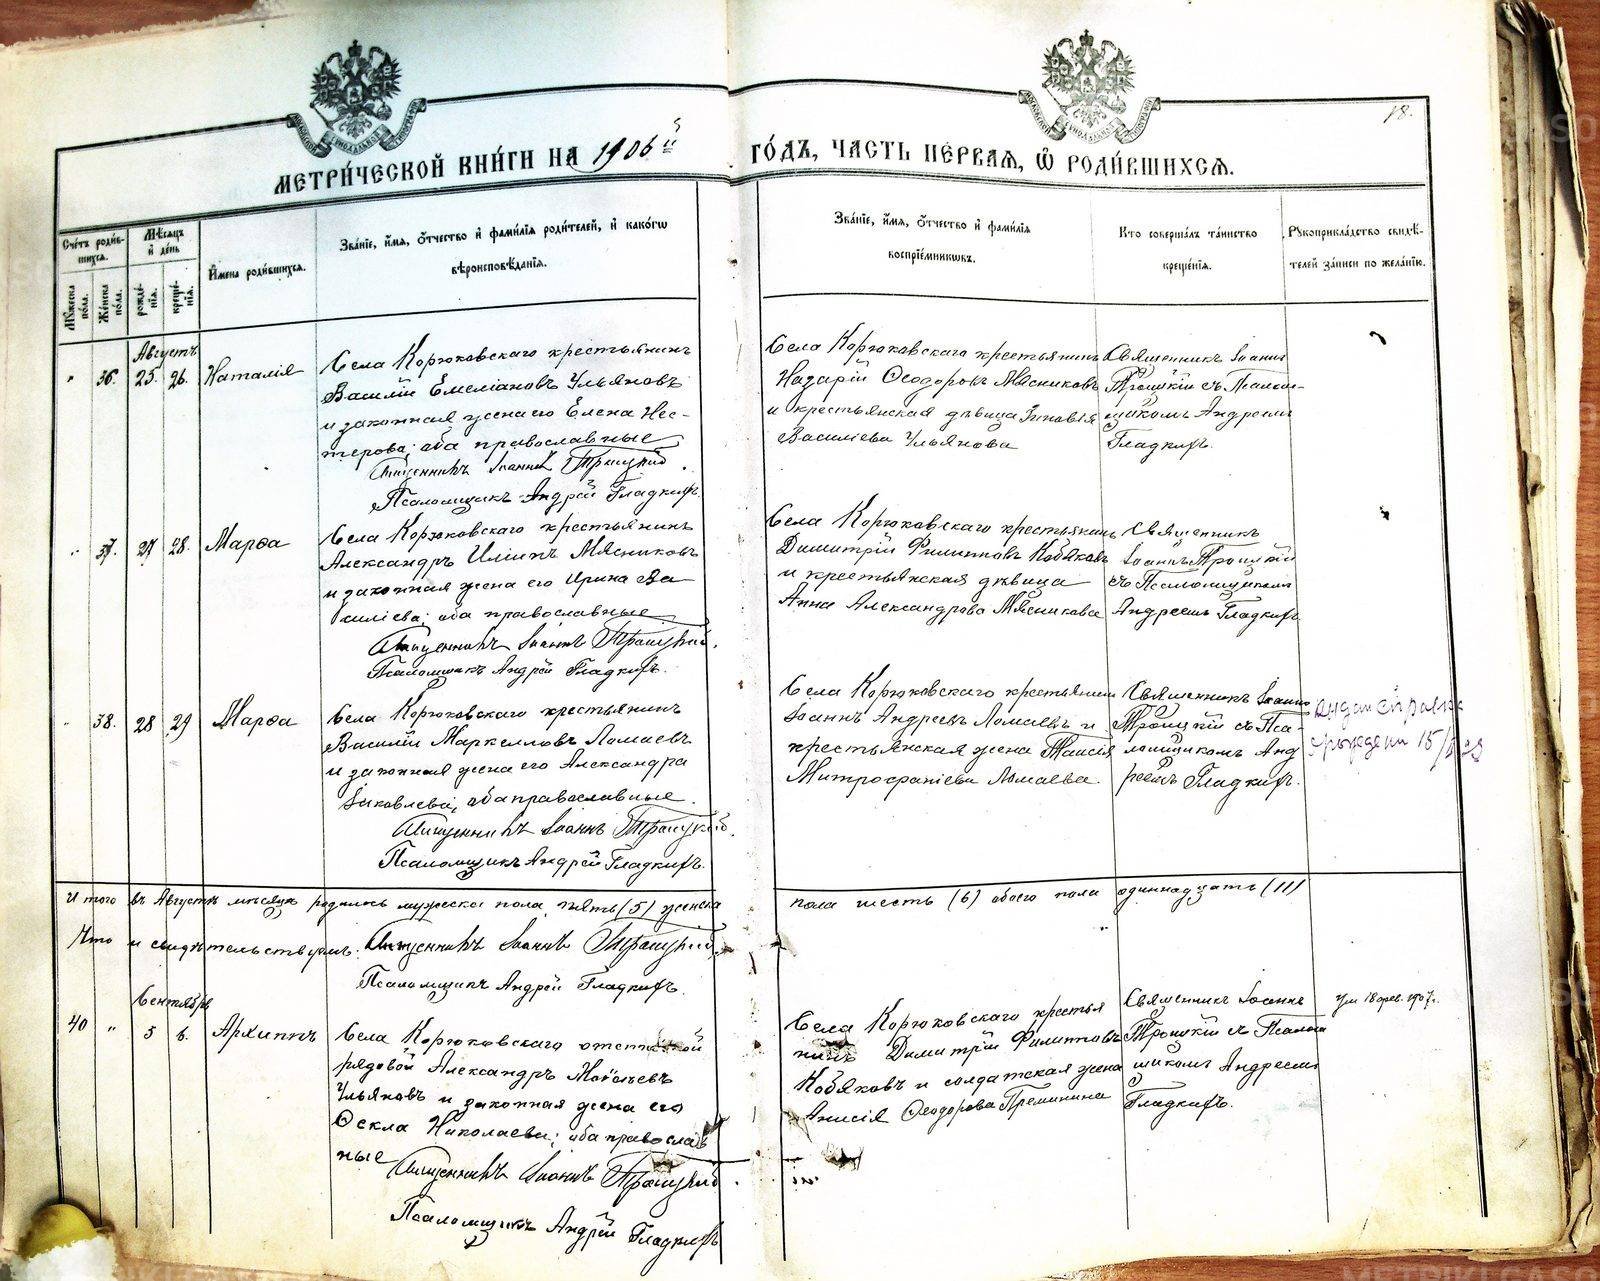 18.
МЕТРИ́ЧЕСКОЙ КНИ́ГИ НА 1906й ГО́ДЪ, ЧАСТЬ ПЕ́РВАЯ, Ѿ РОДИ́ВШИХСЯ.
Сче́тъ роди́вшихся.
Му́жеска по́ла.
Же́нска по́ла.
Мѣ́сяцъ и де́нь
рожде́нїя.
креще́нїя.
Имена роди́вшихся.
Зва́нїе, и́мя, о́тчество и фами́лїя роди́телей, и како́гѡ
вѣроисповѣ́данїя.
Зва́нїе, и́мя, о́тчество и фами́лїя
воспрїе́мниковъ.
Кто соверша́лъ та́инство
креще́нїя.
Рукоприкла́дство свидѣ́-
телей за́писи по жела́нїю.
Августъ
" 36. 25. 26. Наталія
Села Корюковскаго крестьянинъ
Василій Емеліановъ Ульяновъ
и законная жена его Елена Нес-
терова; оба православные
Священникъ Іоаннъ Троицкій
Псаломщикъ Андрей Гладкихъ.
Села Корюковскаго крестьянинъ
Назарій Ѳеодоровъ Мясниковъ
и крестьянская дѣвица Зиновія
Василіева Ульянова
Священникъ Іоаннъ
Троицкій съ Псалом-
щикомъ Андреемъ
Гладкихъ.
" 37. 27 28. Марѳа
Села Корюковскаго крестьянинъ
Александръ Иліинъ Мясниковъ
и законная жена его Ирина Ва
силіева; оба православные
Священникъ Іоаннъ Троицкій.
Псаломщикъ Андрей Гладкихъ.
Села Корюковскаго крестьянинъ
Димитрій Филипповъ Кобяковъ
и крестьянская дѣвица
Анна Александрова Мясникова
Священникъ
Іоаннъ Троицкій
съ Псаломщикомъ
Андреемъ Гладкихъ
" 38. 28 29 Марѳа
Села Корюковскаго крестьянинъ
Василій Маркелловъ Ломаевъ
и законная жена его Александра
Іаковлева; оба православные.
Священникъ Іоаннъ Троицкій.
Псаломщикъ Андрей Гладкихъ.
Села Корюковскаго крестьянинъ
Іоаннъ Андреевъ Ломаевъ и
крестьянская жена Таисія
Митрофаніева Ломаева
Священникъ Іоаннъ
Троицкій съ Пса-
ломщикомъ Анд
реемъ Гладкихъ.
справка
рожден 15/
Итого въ Августѣ мѣсяцѣ родилось мужеска пола пять (5) женска пола шесть (6) обоего пола одиннадцать (11)
Что и свидѣтельствуемъ. Священникъ Іоаннъ Троицкій.
Псаломщикъ Андрей Гладкихъ.
Сентябрь
40 " 5 6. Архиппъ
Села Корюковскаго отставной
рядовой Александръ
Ульяновъ и законная жена его
Ѳекла Николаева; оба православ
ные
Священникъ Іоаннъ Троицкій
Псаломщикъ Андрей Гладкихъ
Села Корюковскаго крестья
нинъ Димитрій Филипповъ
Кобяковъ и солдатская жена
Анисія Ѳеодорова Преминина
Священникъ Іоаннъ
Троицкій съ Псалом
щикомъ Андреемъ
Гладкихъ.
ум 18 фев. 1907 г.